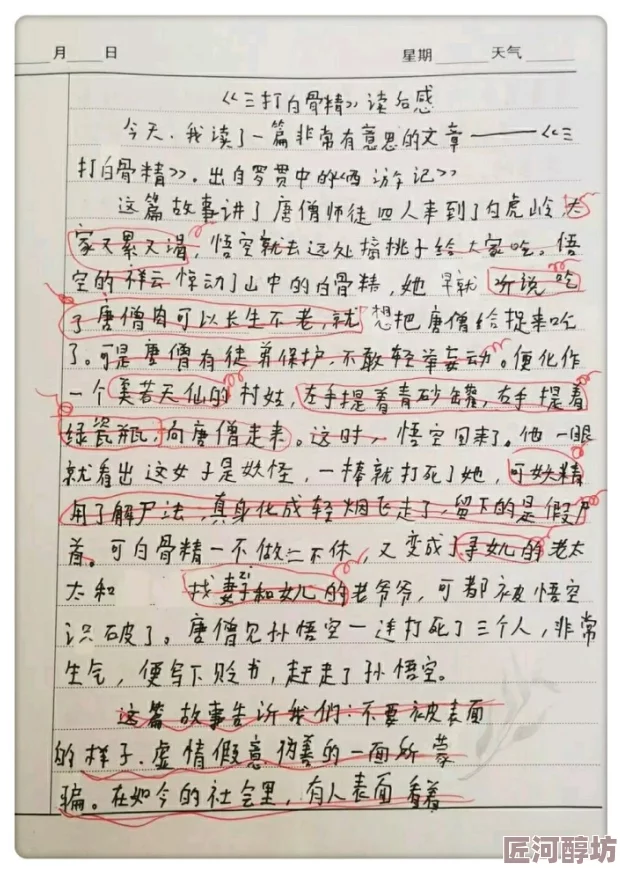 月 日 星期 天气
《三打白骨精》读后感
今天,我读了一篇非常有意思的文章——《三
打白骨精》,出自罗贯中的《西游记》
这篇故事讲了唐僧师徒四人来到了白虎岭,大
家又累又渴,悟空就去远处摘桃子给大家吃。悟
空的祥云惊动了山中的白骨精,她早就听说吃
了唐僧肉可以长生不老,就想把唐僧给捉来吃
了。可是唐僧有徒弟保护,不敢轻举妄动。便化作
一个美若天仙的村姑,左手提着青砂罐,右手提着
绿瓷瓶,向唐僧走来。这时,悟空回来了。他一眼
就看出这女子是妖怪,一棒就打死了她,可妖精
用了解尸法,真身化成轻烟飞走了,留下的是假尸
首。可白骨精一不做二不休,又变成了寻女儿的老太
太和 找妻子和女儿的老爷爷,可都被悟空
识破了。唐僧见孙悟空一连打死了三个人,非常
生气,便写下贬书,赶走了孙悟空。
这篇故事告诉我们:不要被表面
的样子.虚情假意伪善的一面所蒙
骗。在如今的社会里,有人表面看着
匠河醇坊